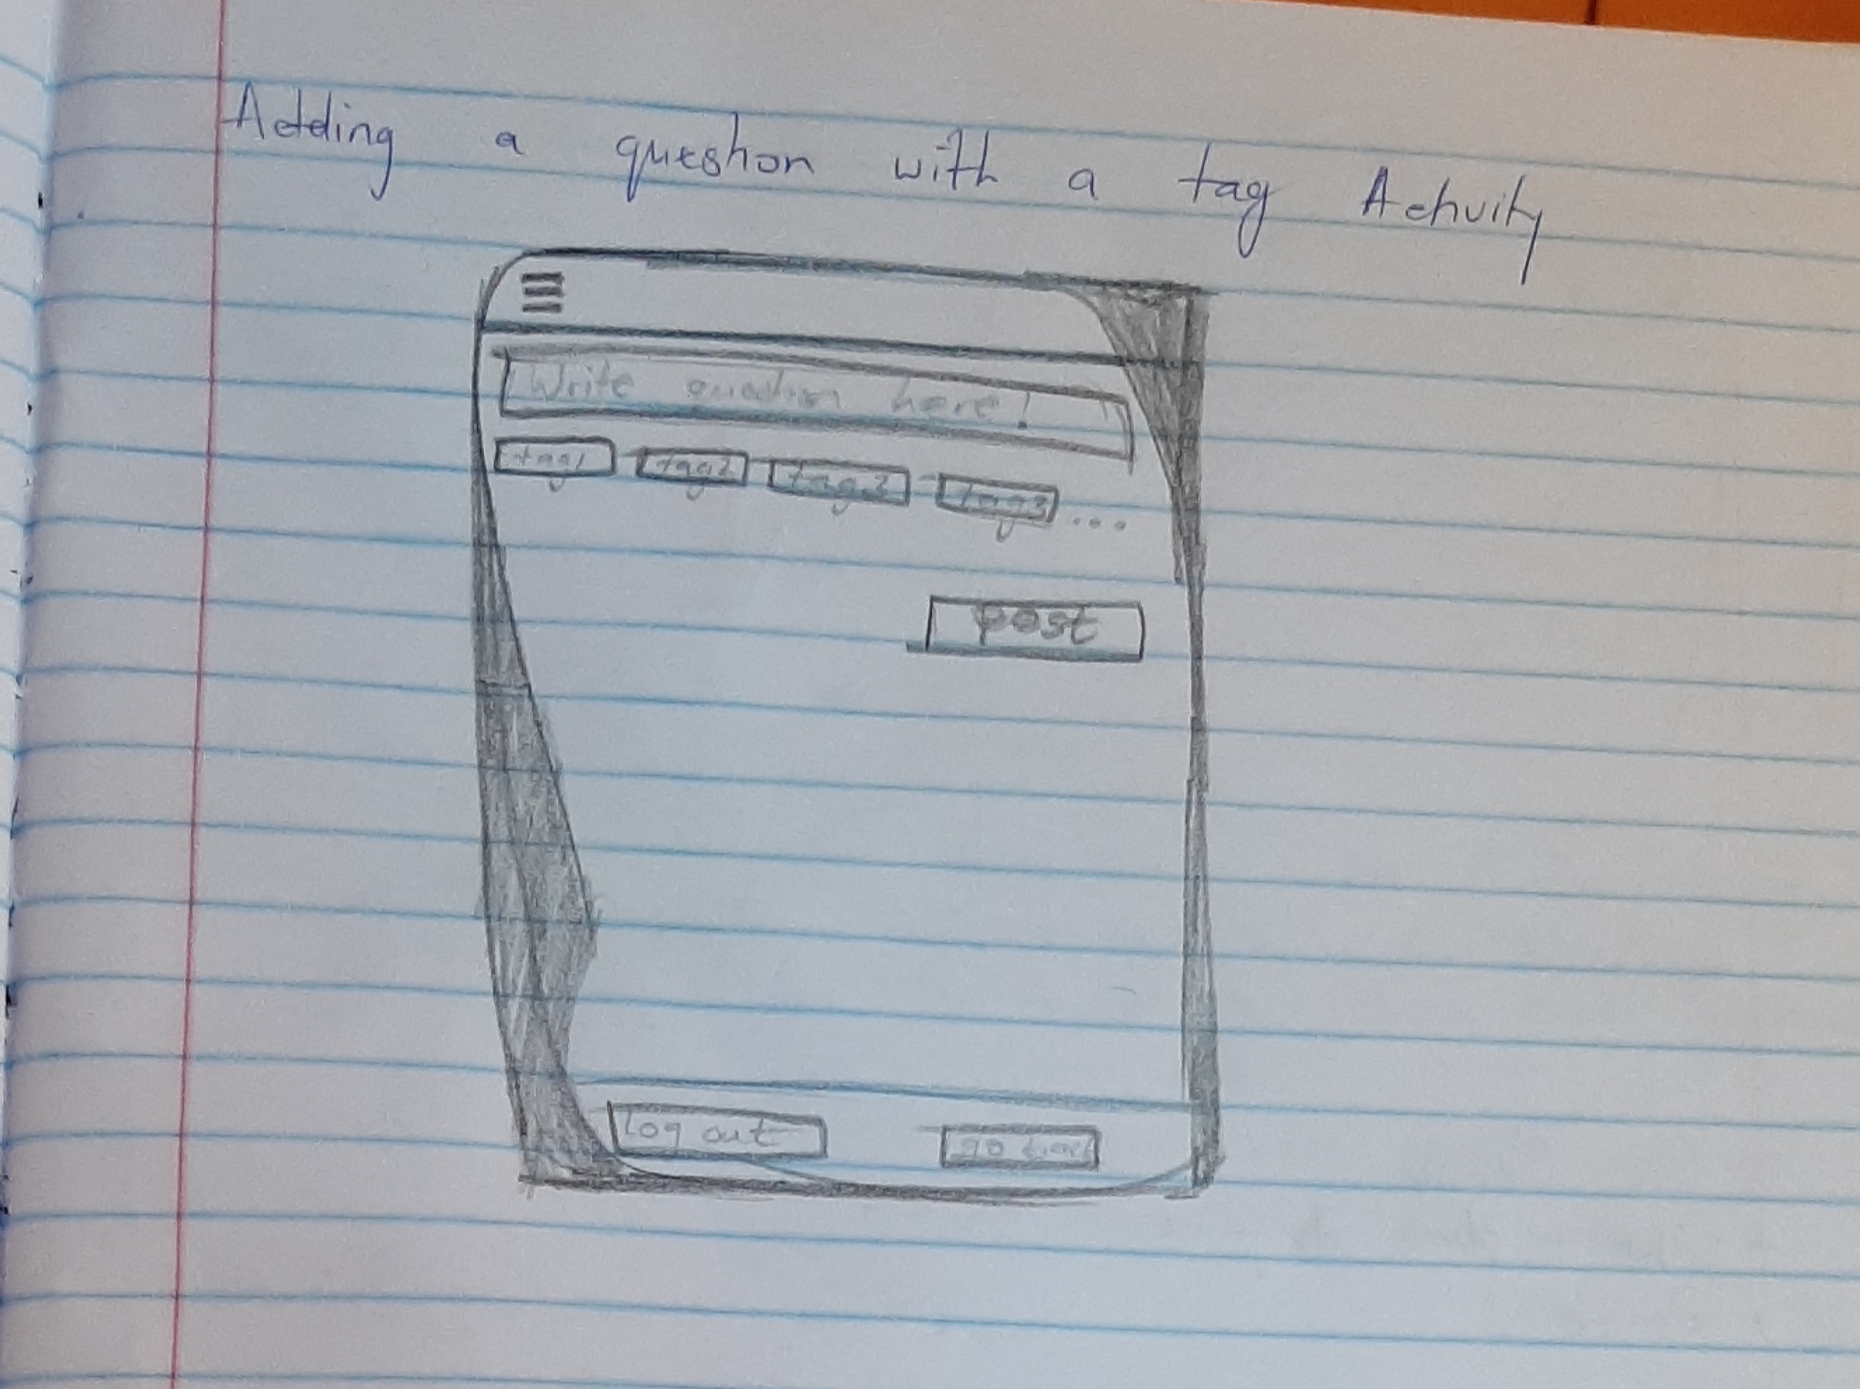 Adding a question with a tag Activity
Write question here!
tag1 tag2 tag3 tag3 ...
post
Log out go back